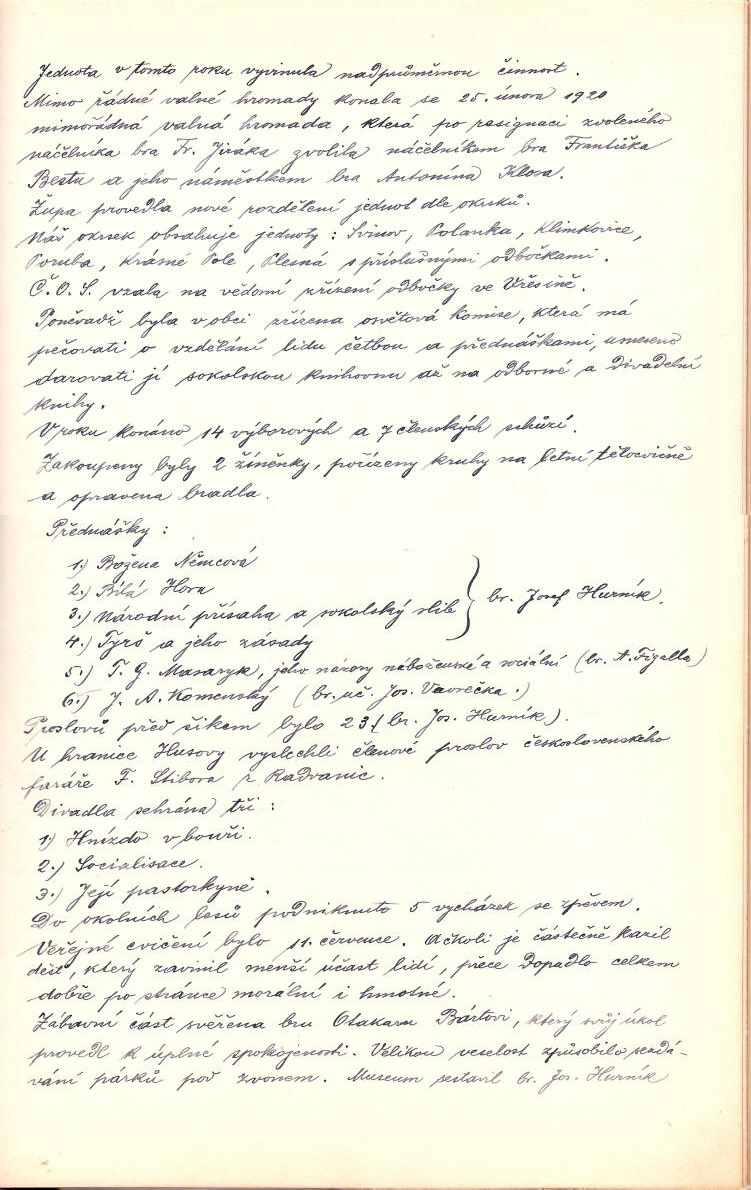 Jednota v tomto roku vyvinula nadprůměrnou činnost.
Mimo řádné valné hromady konala se 25. února 1920
mimořádná valná hromada, která po resignaci zvoleného
náčelníka bra Fr. Jiráka zvolila náčelníkem bra Františka
Bestu a jeho náměstkem bra Antonína Klosa.
Župa provedla nové rozdělení jednot dle okrsků.
Náš okrsek obsahuje jednoty: Svinov, Polanka, Klimkovice,
Poruba, Krásné Pole, Plesná s příslušnými odbočkami.
Č.O.S. vzala na vědomí zřízení odbočky ve Vřesině.
Poněvadž byla v obci zřízena osvětová komise, která má
pečovati o vzdělání lidu četbou a přednáškami, usneseno
darovati jí sokolskou knihovnu až na odborné a divadelní
knihy.
V roku konáno 14 výborových a 7 členských schůzí.
Zakoupeny byly 2 žíněnky, pořízeny kruhy na letní tělocvičně
a opravena bradla.
Přednášky:
1.) Božena Němcová
2.) Bílá Hora
3.) Národní přísaha a sokolský slib } br. Josef Hurník.
4.) Tyrš a jeho zásady
5.) T. G. Masaryk, jeho názory náboženské a sociální (br. A. Figalla)
6.) J. A. Komenský (br. uč. Jos. Vavrečka.)
Proslovů před šikem bylo 23 (br. Jos. Hurník).
U hranice Husovy vyslechli členové proslov československého
faráře F. Stibora z Radvanic.
Divadla sehrána tři:
1.) Hnízdo v bouři.
2.) Socialisace.
3.) Její pastorkyně.
Do okolních lesů podniknuto 5 vycházek se zpěvem.
Veřejné cvičení bylo 11. července. Ačkoli je částečně kazil
déšť, který zavinil menší účast lidí, přece dopadlo celkem
dobře po stránce morální i hmotné.
Zábavní část svěřena bru Otakaru Bártovi, který svůj úkol
provedl k úplné spokojenosti. Velikou veselost způsobilo rozdá-
vání párků pod zvonem. Museum sestavil br. Jos. Hurník